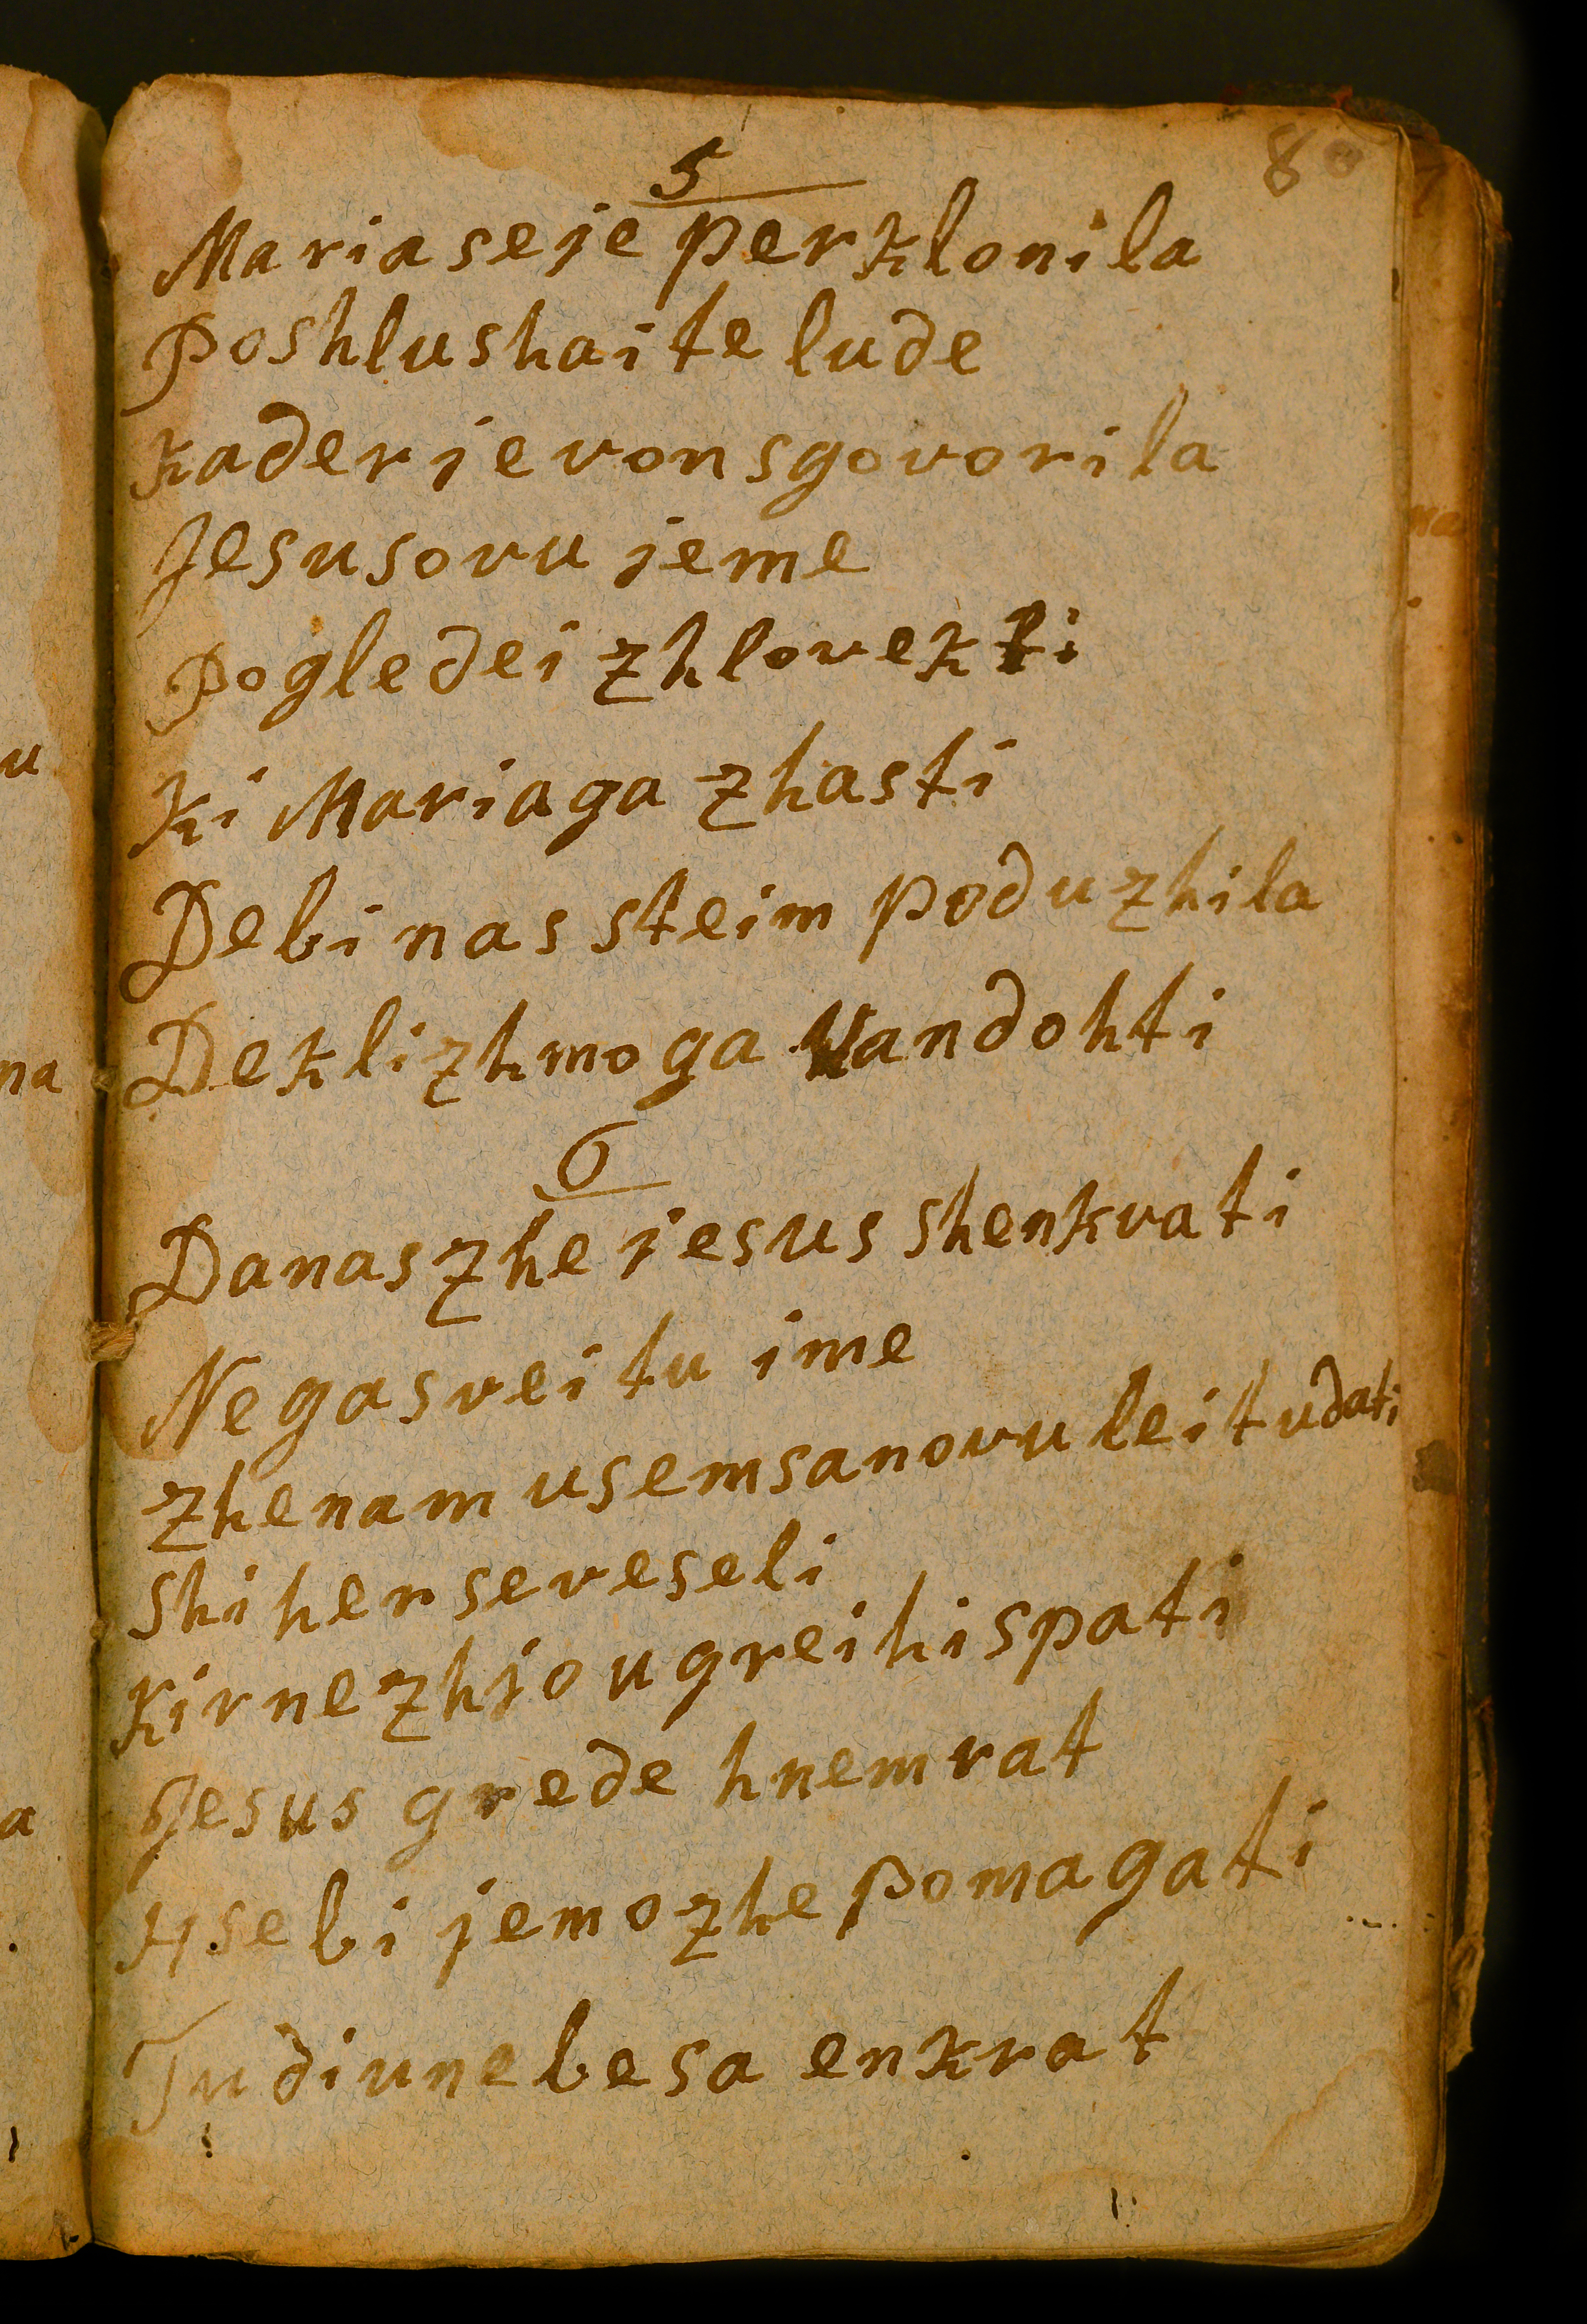 8
5
Maria seje perklonila
Poshlushaite lude
kader je von sgovorila
Jesusovu jeme
Pogledei zhlovek ti
Ki Maria ga zhasti
De bi nas steim poduzhila
De klizhmo ga Vandohti
6
Danas zhe jesus shenkvati
Nega sveitu ime
zhe nam usem sa novu leitu dati
Shiher se veseli
Kir ne zhjo u greihi spati
Jesus grede hnem rat
Hsebi je mozhe pomagati
Tudi u nebesa enkrat